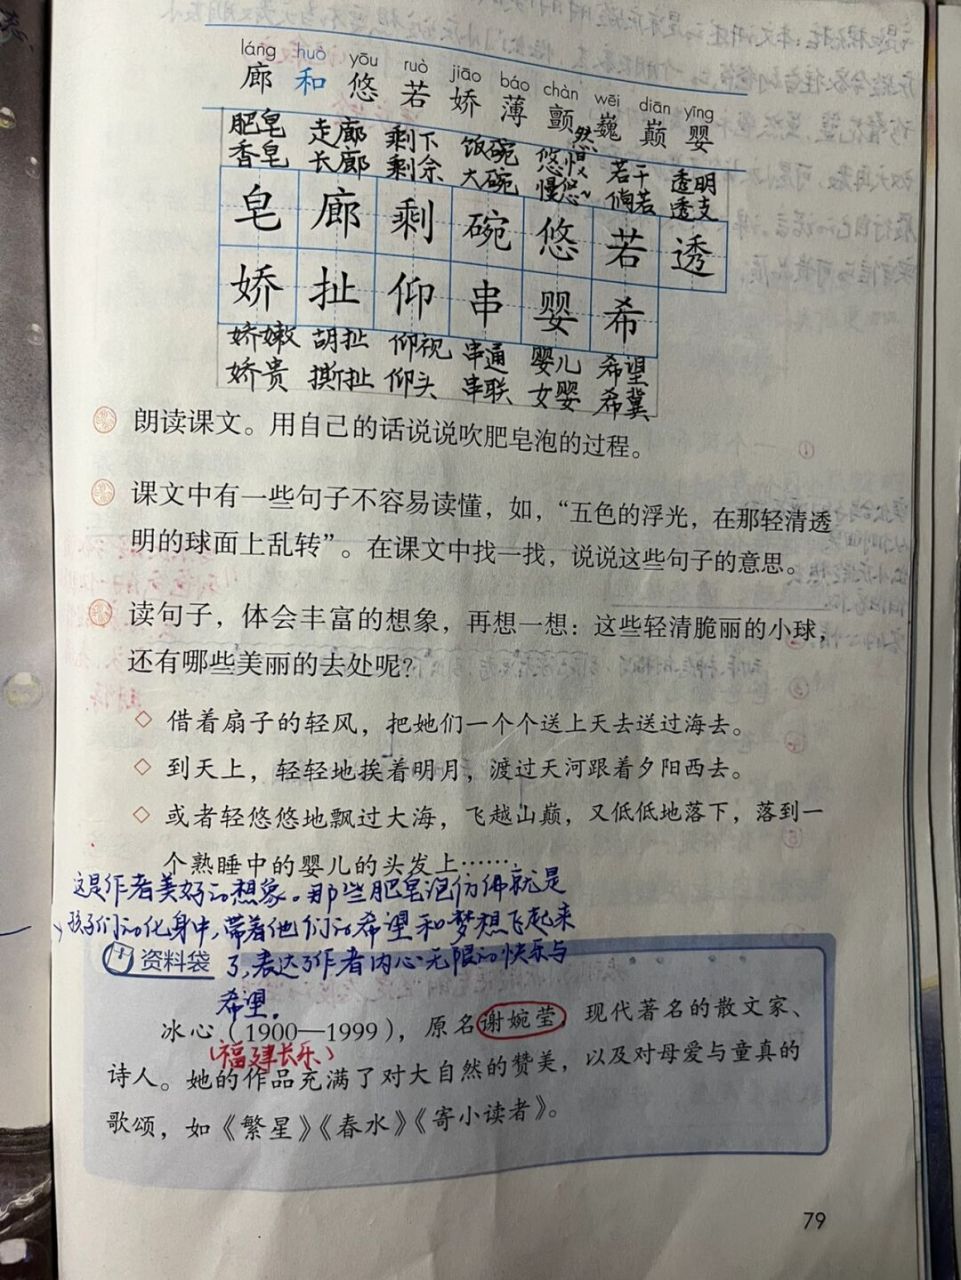 láng huò yōu ruò jiāo báo chàn wēi diān yīng
廊 和 悠 若 娇 薄 颤 巍 巅 婴
肥皂 走廊 剩下 饭碗 悠然 若干 透明
香皂 长廊 剩余 大碗 慢悠悠 倘若 透支
皂 廊 剩 碗 悠 若 透
娇 扯 仰 串 婴 希
娇嫩 胡扯 仰视 串通 婴儿 希望
娇贵 撕扯 仰头 串联 女婴 希冀
朗读课文。用自己的话说说吹肥皂泡的过程。
课文中有一些句子不容易读懂，如，“五色的浮光，在那轻清透
明的球面上乱转”。在课文中找一找，说说这些句子的意思。
读句子，体会丰富的想象，再想一想：这些轻清脆丽的小球，
还有哪些美丽的去处呢？
◇ 借着扇子的轻风，把她们一个个送上天去送过海去。
◇ 到天上，轻轻地挨着明月，渡过天河跟着夕阳西去。
◇ 或者轻悠悠地飘过大海，飞越山巅，又低低地落下，落到一
个熟睡中的婴儿的头发上……
这是作者美好的想象。那些肥皂泡仿佛就是
孩子们的化身中，带着他们的希望和梦想飞起来
了，表达了作者内心无限的快乐与
希望。
资料袋
冰心（1900—1999），原名谢婉莹，现代著名的散文家、
（福建长乐）
诗人。她的作品充满了对大自然的赞美，以及对母爱与童真的
歌颂，如《繁星》《春水》《寄小读者》。
79